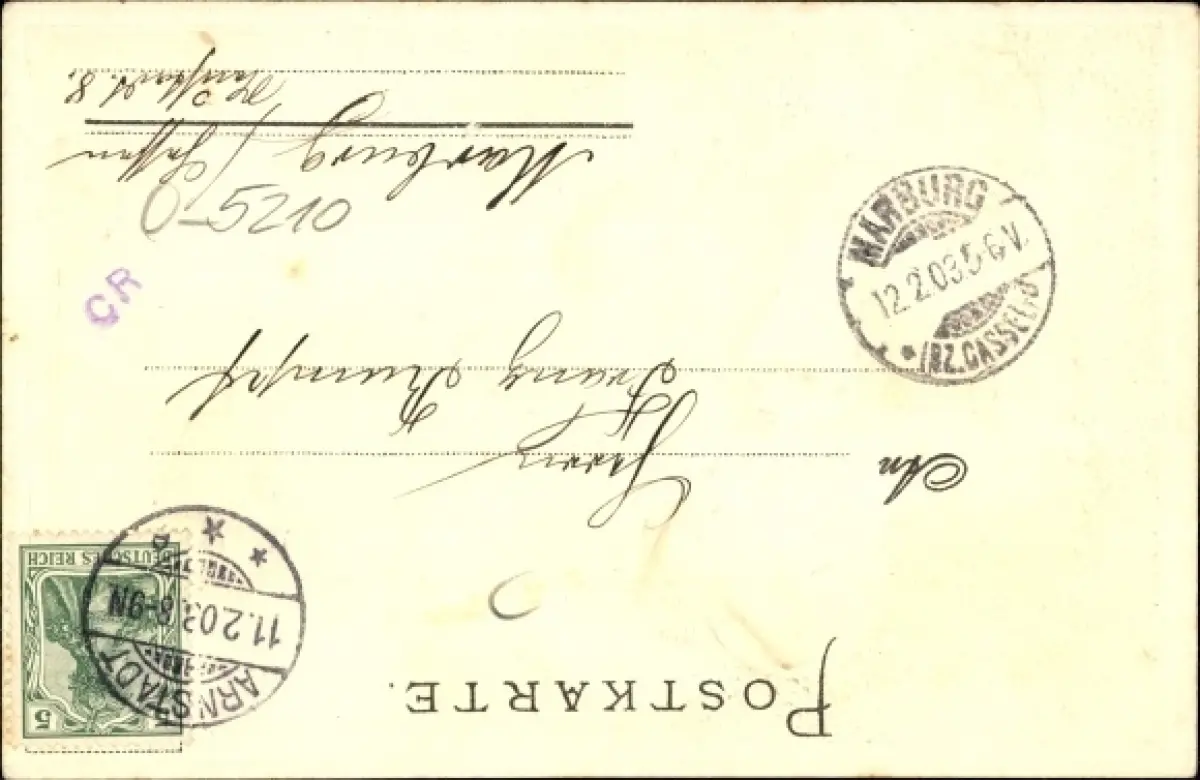 POSTKARTE.
DEUTSCHES REICH
5
ARNSTADT
11.2.03. 8-9N
An
Herrn
Franz Kumpf
Marburg / Hessen
8.
MARBURG
12.2.03 5-6V.
(BZ.CASSEL)
CR
0-5210